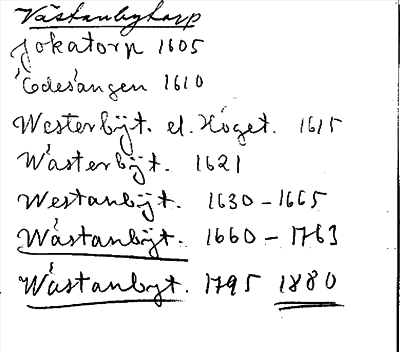 Västanbytorp
Jokatorp 1605
Ödesängen 1610
Westerbÿt. el. Höget. 1615
Wästerbÿt. 1621
Westanbÿt. 1630 – 1665
Wästanbÿt. 1660 – 1763
Wästanbyt. 1795 1880